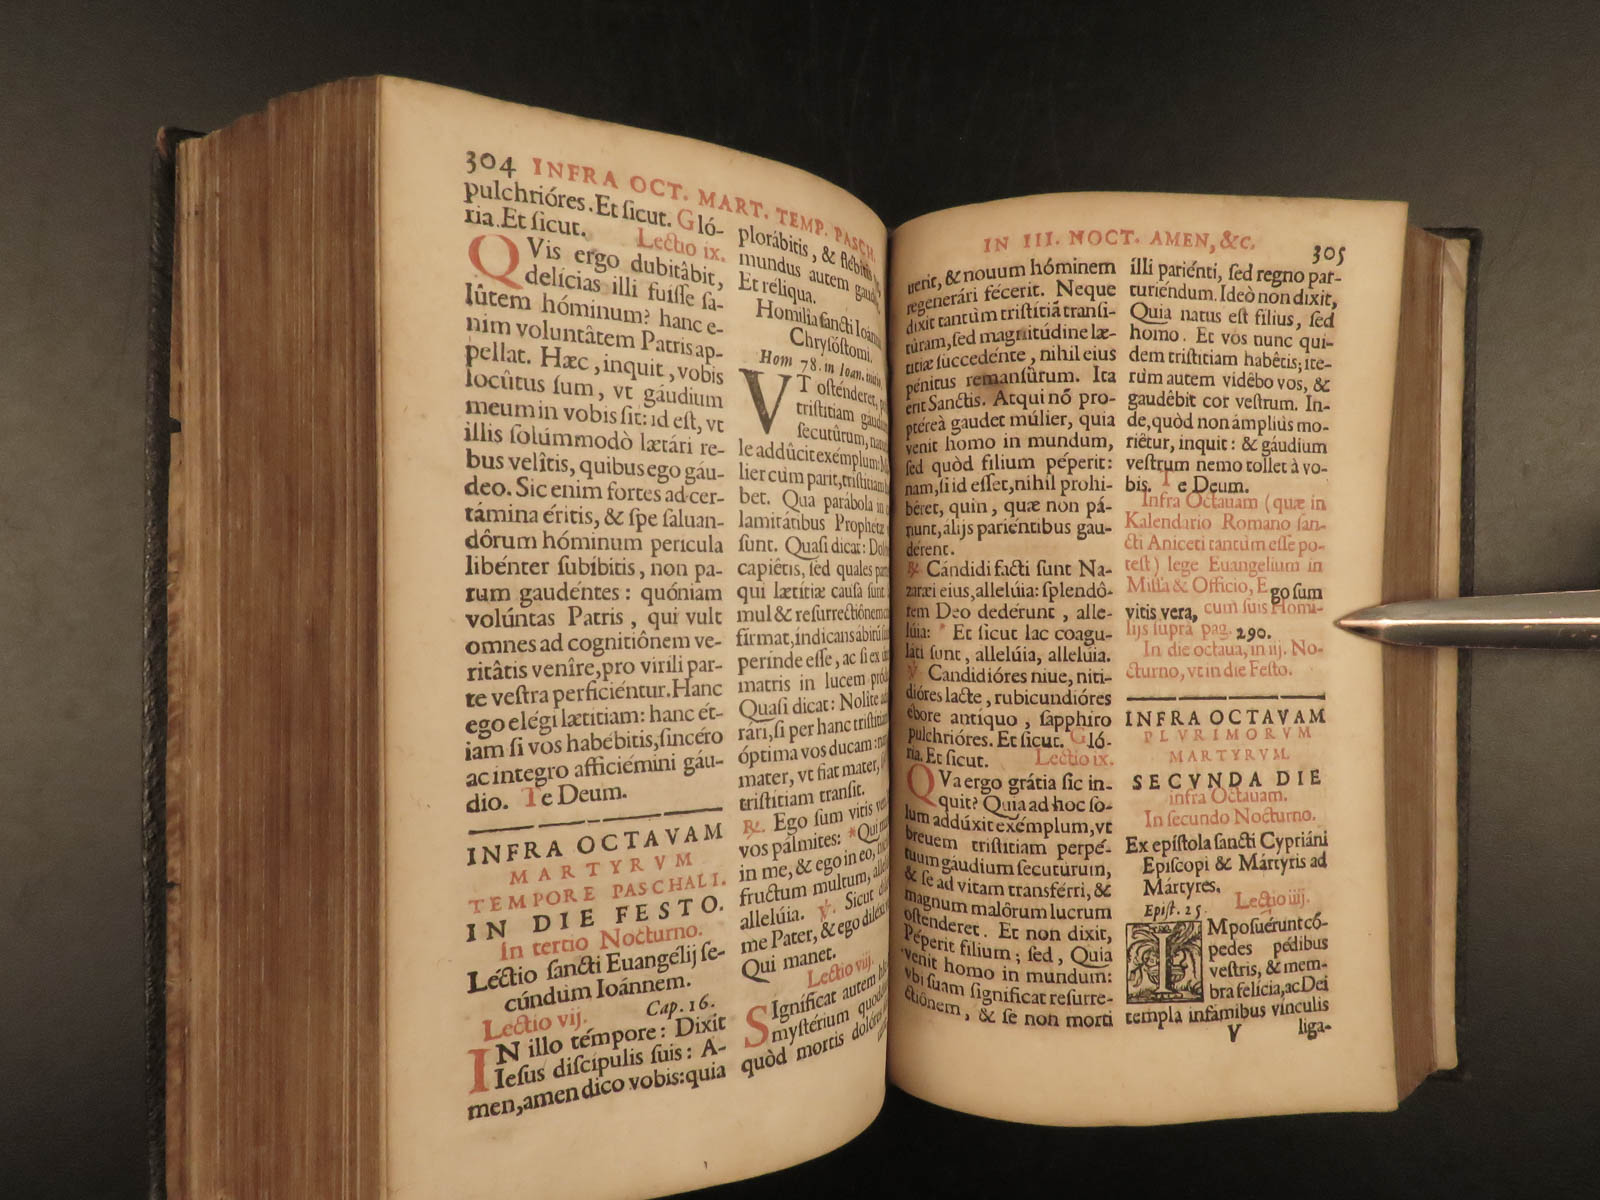 304 INFRA OCT. MART. TEMP. PASCH.
pulchrióres. Et ſicut. Gló-
ria. Et ſicut.
Lectio ix.
QVis ergo dubitâbit,
delícias illi fuiſſe ſa-
lûtem hóminum? hanc e-
nim voluntâtem Patris ap-
pellat. Hæc, inquit, vobis
locûtus ſum, vt gáudium
meum in vobis ſit: id eſt, vt
illis ſolúmmodò lætári re-
bus velîtis, quibus ego gáu-
deo. Sic enim fortes ad cer-
támina éritis, & ſpe ſaluan-
dôrum hóminum perícula
libénter ſubíbitis, non pa-
rum gaudéntes: quóniam
volúntas Patris, qui vult
omnes ad cognitiônem ve-
ritâtis venîre, pro virili par-
te veſtra perficiéntur. Hanc
ego elégi lætitiam: hanc ét-
iam ſi vos habébitis, ſincéro
ac íntegro afficiémini gáu-
dio. Te Deum.
INFRA OCTAVAM
MARTYRVM
TEMPORE PASCHALI.
IN DIE FESTO.
In tertio Nocturno.
Léctio ſancti Euangélij ſe-
cúndum Ioánnem.
Cap. 16.
Lectio vij.
IN illo témpore: Dixit
Ieſus diſcípulis ſuis: A-
men, amen dico vobis: quia
plorábitis, & flébitis
mundus autem
Et réliqua.
Homilia ſancti
Chryſóſtomi.
Hom 78. in Ioan.
VT oſténderet,
triſtitiam
ſecutûrum,
le addûcit exémplum:
lier cum parit, triſtitiam
bet. Qua parábola in
lamitátibus Prophetæ
ſunt. Quaſi dicat:
capiêtis, ſed quales
qui lætítiæ cauſa ſunt
mul & reſurrectiónem
firmat, índicans
perinde eſſe, ac ſi ex
matris in lucem
Quaſi dicat: Nolîte
rári, ſi per hanc
óptima vos ducam:
mater, vt fiat mater,
triſtitiam tranſit.
℟. Ego ſum vitis vera,
vos pálmites: * Qui
in me, & ego in eo,
fructum multum,
allelúia. ℣. Sicut
me Pater, & ego
Qui manet.
Lectio viij.
SIgníficat autem
myſtérium
quòd mortis
IN III. NOCT. AMEN, &C. 305
uerit, & nouum hóminem
regenerári fécerit. Neque
dixit tantùm triſtitiã tranſi-
túram, ſed magnitúdine læ-
titiæ ſuccedénte, nihil eius
pénitus remanſûrum. Ita
erit Sanctis. Atqui nõ pro-
ptéreà gaudet múlier, quia
venit homo in mundum,
ſed quòd filium péperit:
nam, ſi id eſſet, nihil prohi-
béret, quin, quæ non pá-
riunt, álijs pariéntibus gau-
dérent.
℟. Cándidi facti ſunt Na-
zaræi eius, allelúia: ſplendô-
rem Deo dedérunt, alle-
lúia: * Et ſicut lac coagu-
láti ſunt, allelúia, allelúia.
℣. Candidióres niue, niti-
dióres lacte, rubicundióres
ébore antíquo, ſapphíro
pulchrióres. Et ſicut. Gló-
ria. Et ſicut.
Lectio ix.
QVa ergo grátia ſic in-
quit? Quia ad hoc ſo-
lum addúxit exémplum, vt
breuem triſtitiam perpé-
tuum gáudium ſecutúrum,
& ſe ad vitam transférri, &
magnum malôrum lucrum
oſtenderet. Et non dixit,
Péperit filium; ſed, Quia
venit homo in mundum:
vbi ſuam ſignificat reſurre-
ctiónem, & ſe non morti
illi pariénti, ſed regno par-
turiéndum. Ideò non dixit,
Quia natus eſt filius, ſed
homo. Et vos nunc qui-
dem triſtitiam habêtis; ite-
rùm autem vidêbo vos, &
gaudêbit cor veſtrum. In-
de, quòd non ámpliùs mo-
riétur, inquit: & gáudium
veſtrum nemo tollet à vo-
bis. Te Deum.
Infra Octauam (quæ in
Kalendario Romano ſan-
cti Aniceti tantum eſſe po-
teſt) lege Euangelium in
Miſſa & Officio, Ego ſum
vitis vera, cum ſuis Homi-
lijs ſupra pag. 290.
In die octaua, in iij. No-
cturno, vt in die Feſto.
INFRA OCTAVAM
PLVRIMORVM
MARTYRVM
SECVNDA DIE
infra Octauam.
In ſecundo Nocturno.
Ex epíſtola ſancti Cypriáni
Epíſcopi & Mártyris ad
Mártyres.
Lectio iiij.
Epiſt. 25.
IMpoſuérunt cóm-
pedes pédibus
veſtris, & mem-
bra felícia, ac Dei
templa infámibus vínculis
V liga-